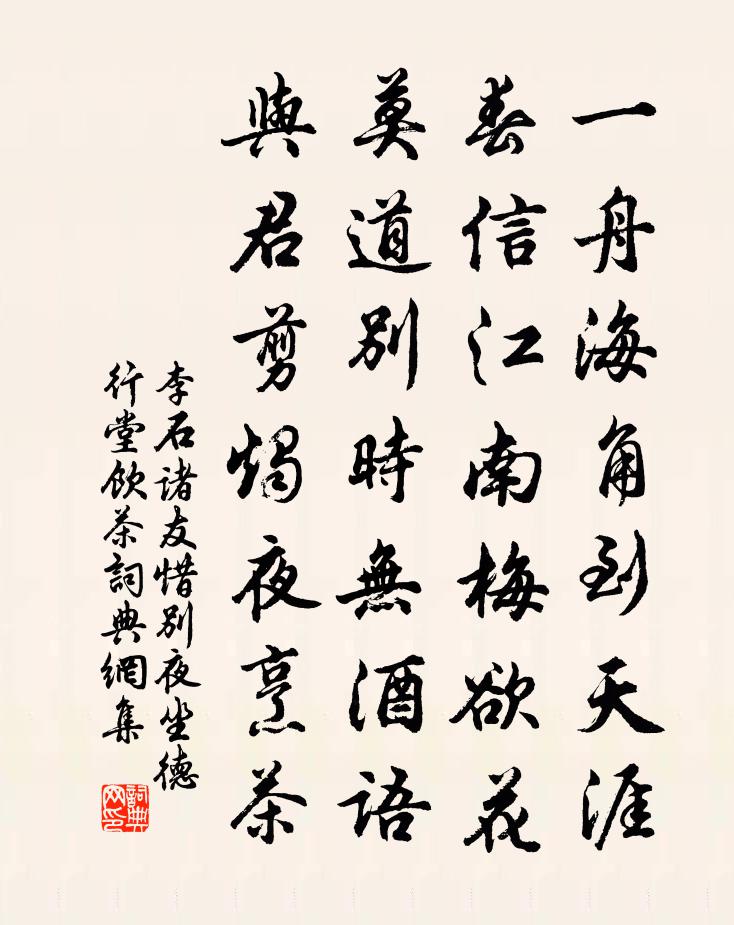 一舟海角到天涯
春信江南梅欲花
莫道別時無酒語
與君剪燭夜烹茶
李石諸友惜別夜坐德
行堂飲茶詞典網集
詞典网印